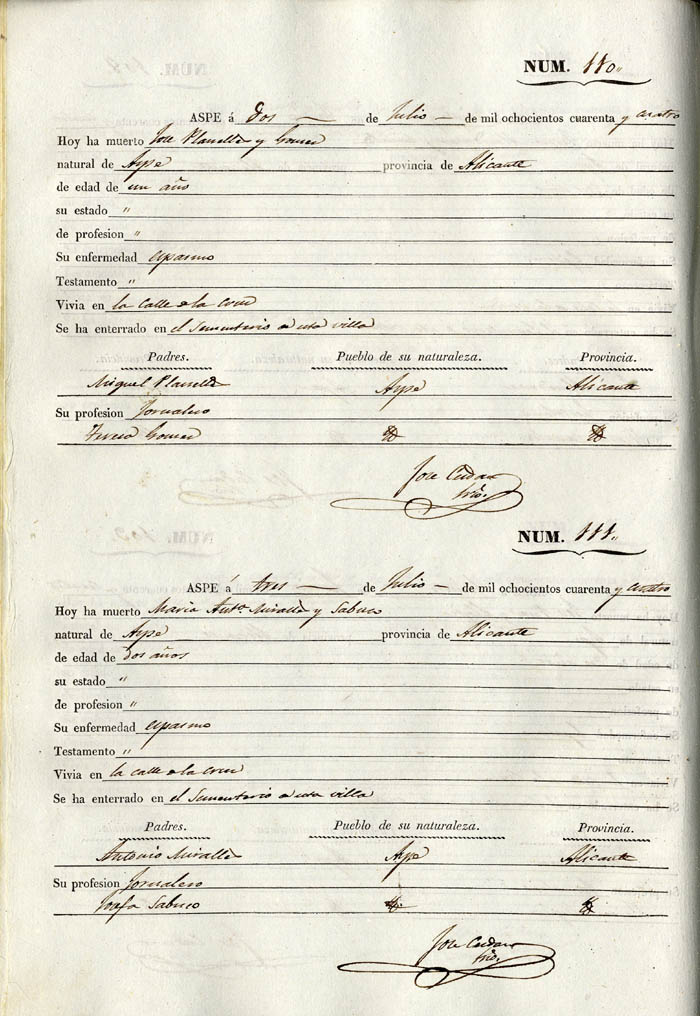 NUM. 110.
ASPE á dos de Julio de mil ochocientos cuarenta y cuatro
Hoy ha muerto Jose Planelles y Gomez
natural de Aspe provincia de Alicante
de edad de un año
su estado "
de profesion "
Su enfermedad espasmo
Testamento "
Vivia en la calle de la cruz
Se ha enterrado en el Sementerio de esta villa
Padres. Pueblo de su naturaleza. Provincia.
Miguel Planelles Aspe Alicante
Su profesion Jornalero
Teresa Gomez
Jose
srio.
NUM. 111.
ASPE á tres de Julio de mil ochocientos cuarenta y cuatro
Hoy ha muerto Maria Anta. Miralles y Sabuco
natural de Aspe provincia de Alicante
de edad de dos años
su estado "
de profesion "
Su enfermedad espasmo
Testamento "
Vivia en la calle de la cruz
Se ha enterrado en el Sementerio de esta villa
Padres. Pueblo de su naturaleza. Provincia.
Antonio Miralles Aspe Alicante
Su profesion Jornalero
Josefa Sabuco
Jose
srio.